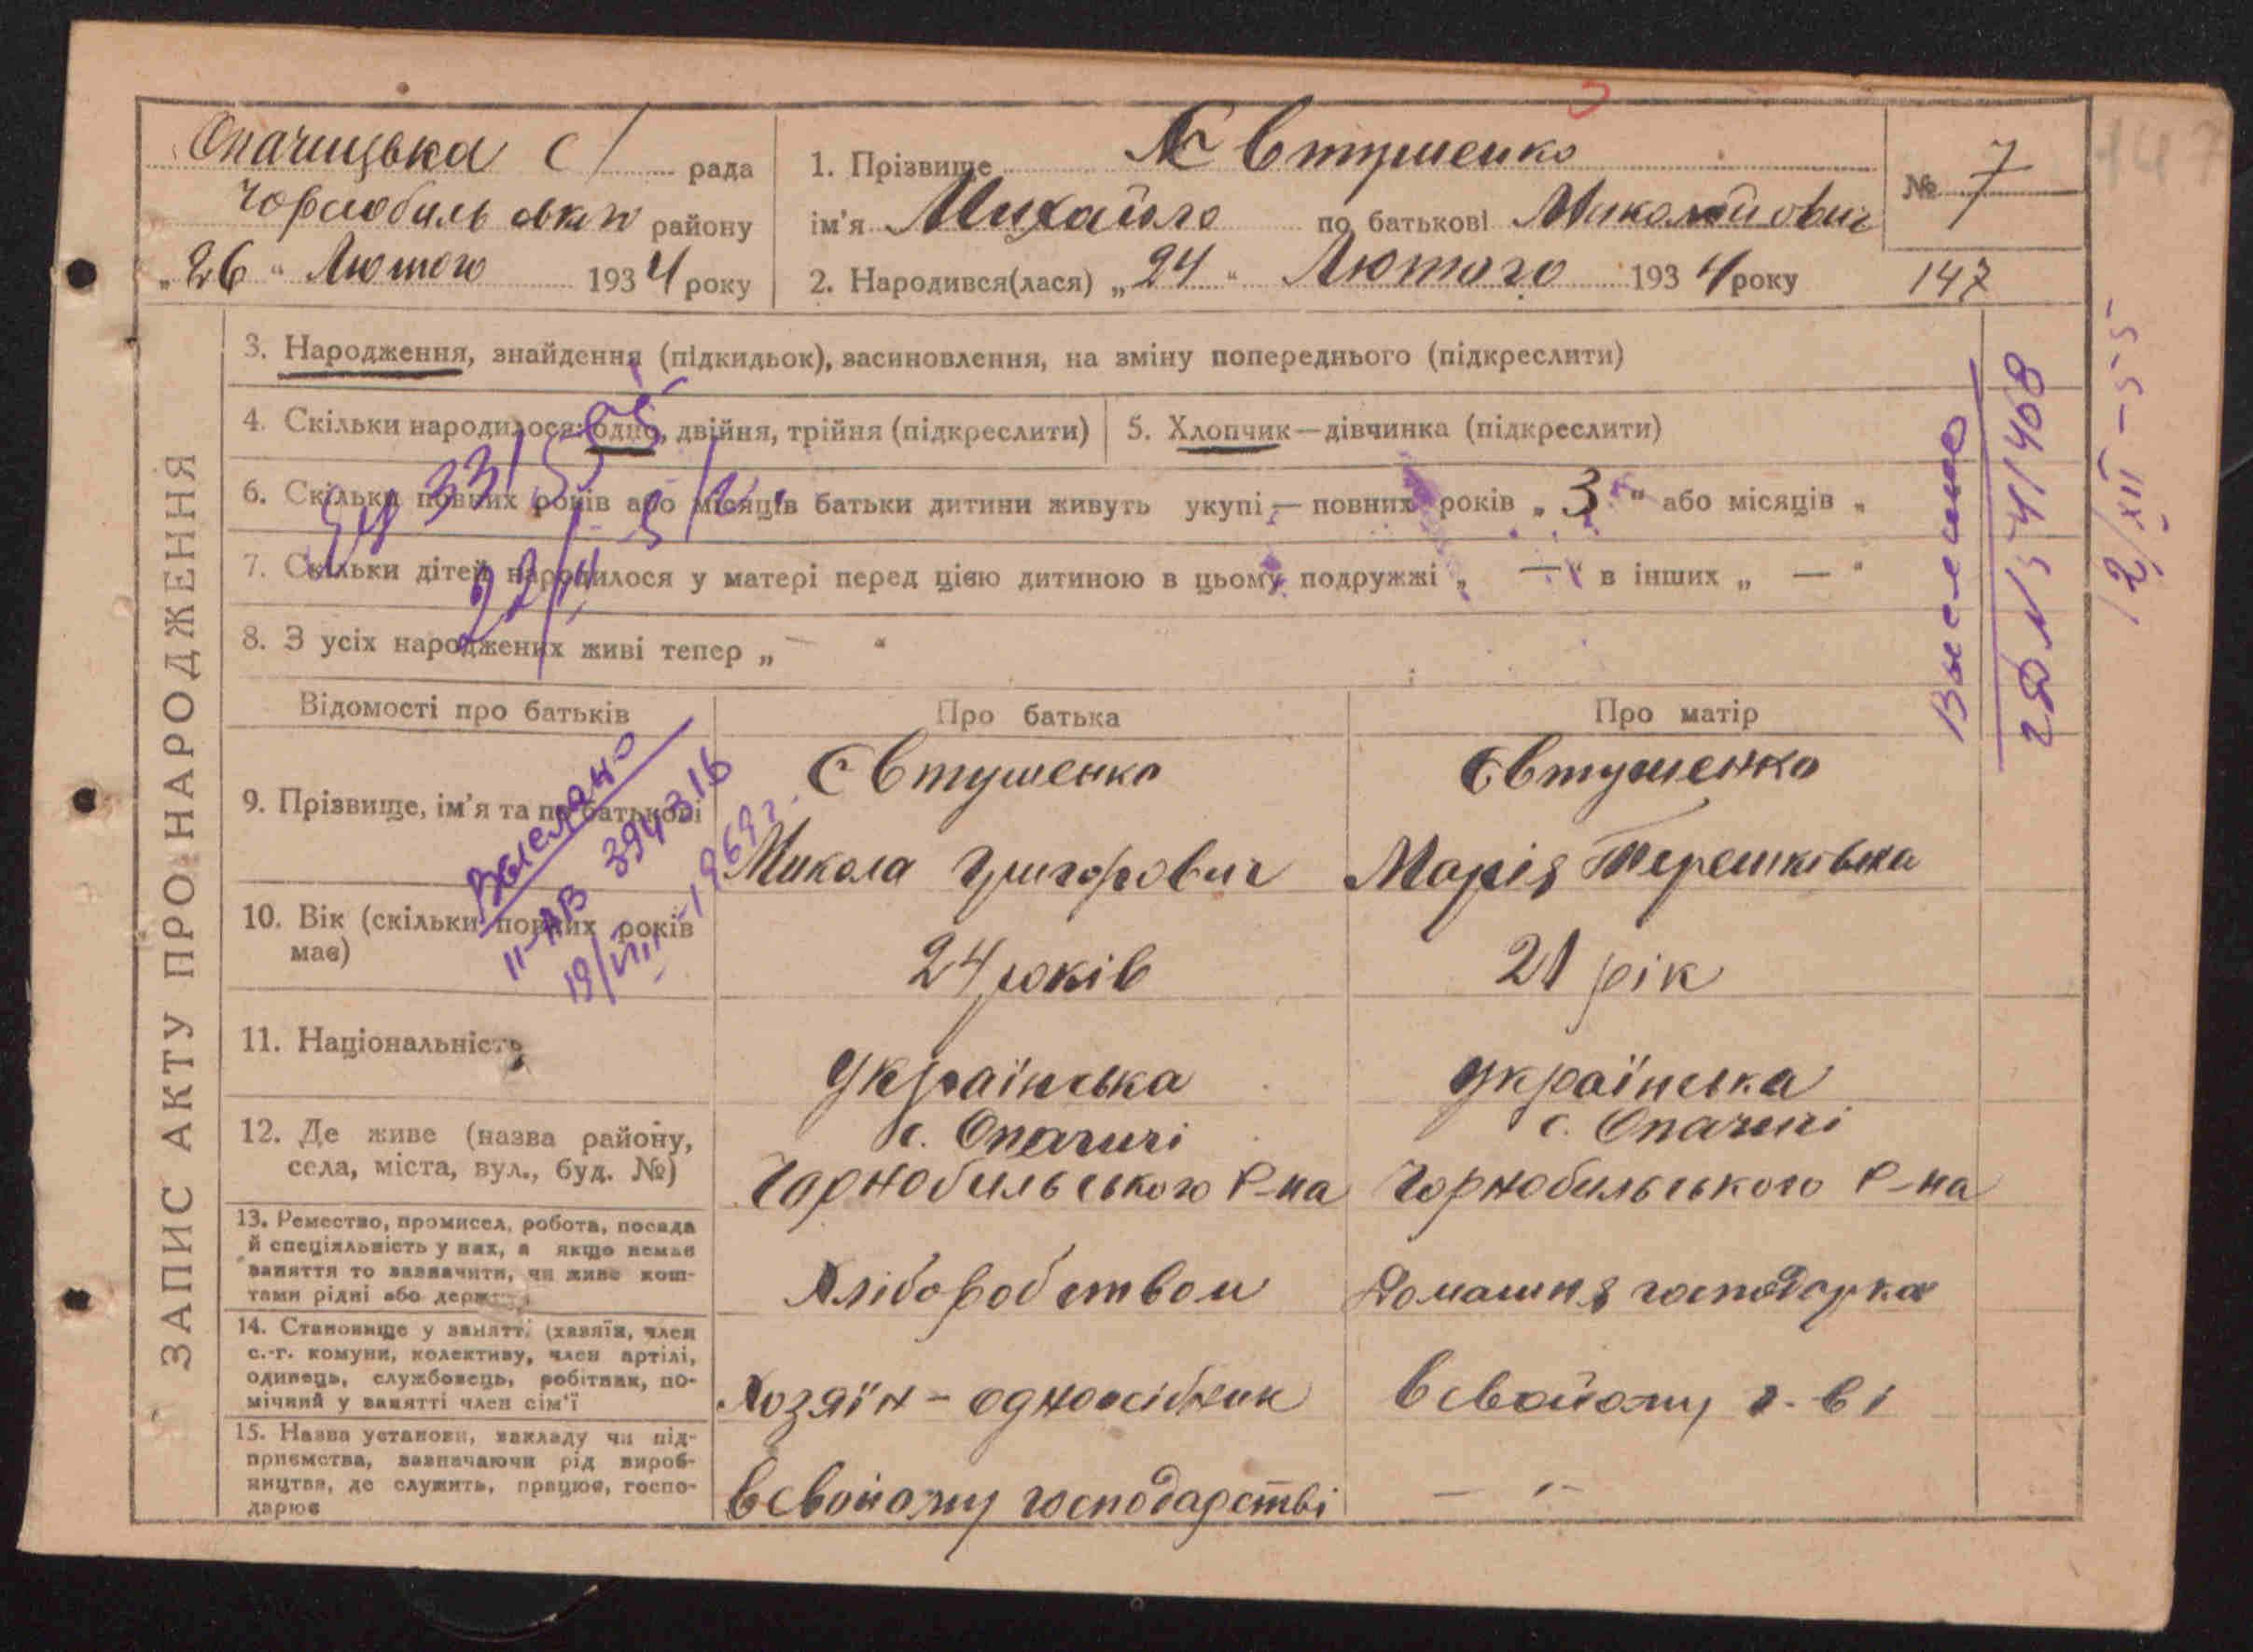 Опачицька с/ рада
Чорнобильського району
„26“ Лютого 1934 року
1. Прізвище Євтушенко
ім'я Михайло по батькові Миколайович
2. Народився(лася) „24“ Лютого 1934 року
№ 7
147
147
ЗАПИС АКТУ ПРО НАРОДЖЕННЯ
3. Народження, знайдення (підкидьок), засиновлення, на зміну попереднього (підкреслити)
4. Скільки народилося: одно, двійня, трійня (підкреслити)
5. Хлопчик—дівчинка (підкреслити)
6. Скільки повних років або місяців батьки дитини живуть укупі — повних років „3“ або місяців „
7. Скільки дітей народилося у матері перед цією дитиною в цьому подружжі „—“ в інших „—“
8. З усіх народжених живі тепер „—“
Відомості про батьків
Про батька
Про матір
9. Прізвище, ім'я та по батькові
Євтушенко
Микола Григорович
Євтушенко
Марія Терешківна
10. Вік (скільки повних років
має)
24 років
21 рік
11. Національність
українська
українська
12. Де живе (назва району,
села, міста, вул., буд. №)
с. Опачичі
Чорнобильського Р-на
с. Опачичі
Чорнобильського Р-на
13. Ремество, промисел, робота, посада
й спеціяльність у них, а якщо немає
заняття то зазначити, чи живе кош-
тами рідні або держ
Хліборобством
Домашня господарка
14. Становище у занятті (хазяїн, член
с.-г. комуни, колективу, член артілі,
одинець, службовець, робітник, по-
мічний у занятті член сім'ї
Хозяїн - одноосібник
В свойому г-ві
15. Назва установи, закладу чи під-
приємства, зазначаючи рід вироб-
ництва, де служить, працює, госпо-
дарює
В свойому господарстві
— " —
Выслано
II-АВ 394316
19/VIII-1969г.
Выслано
141408
12/XII-55